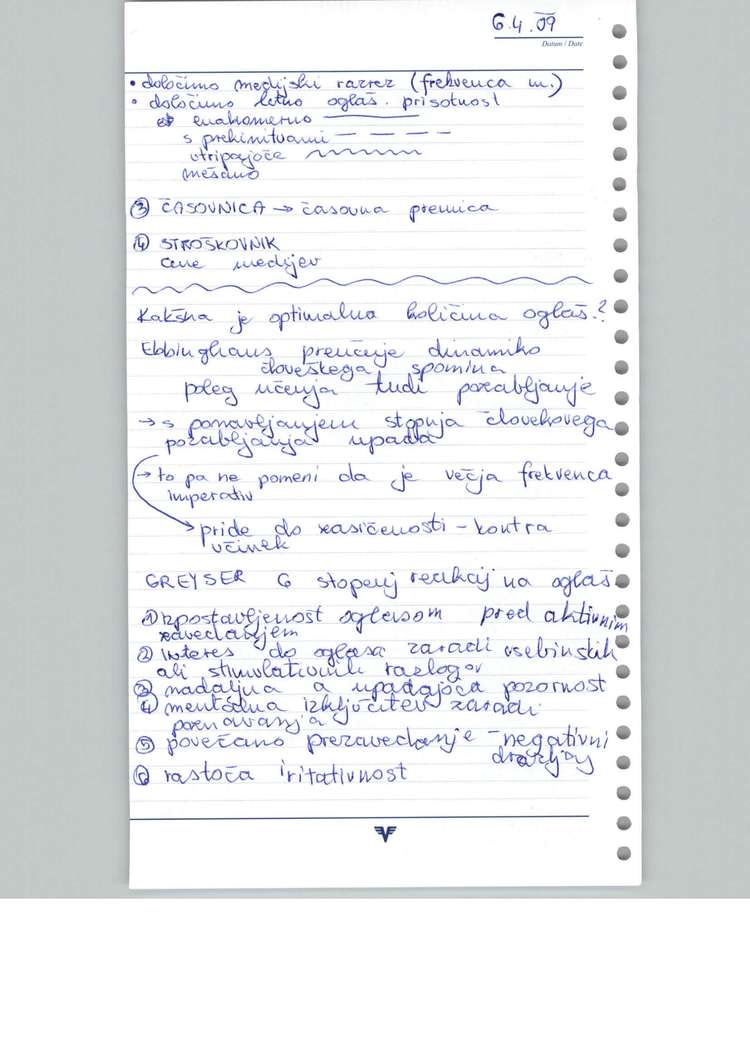 6.4.09
Datum / Date
• določimo medijski razrez (frekvenca m.)
• določimo letno oglaš. prisotnost
enakomerno
s prekinitvami
utripajoče
mešano
③ ČASOVNICA → časovna premica
④ STROŠKOVNIK
cene medijev
Kakšna je optimalna količina oglaš.?
Ebbinghaus preučuje dinamiko
človeškega spomina
poleg učenja tudi pozabljanje
→ s ponavljanjem stopnja človekovega
pozabljanja upada
→ to pa ne pomeni da je večja frekvenca
imperativ
pride do zasičenosti - kontra
učinek
GREYSER 6 stopenj reakcij na oglaš.
① Izpostavljenost oglasom pred aktivnim
zavedanjem
② Interes do oglasa zaradi vsebinskih
ali stimulativnih razlogov
③ nadaljna a upadajoča pozornost
④ mentalna izključitev zaradi
poznavanja
⑤ povečano prezavedanje - negativni
⑥ rastoča iritativnost